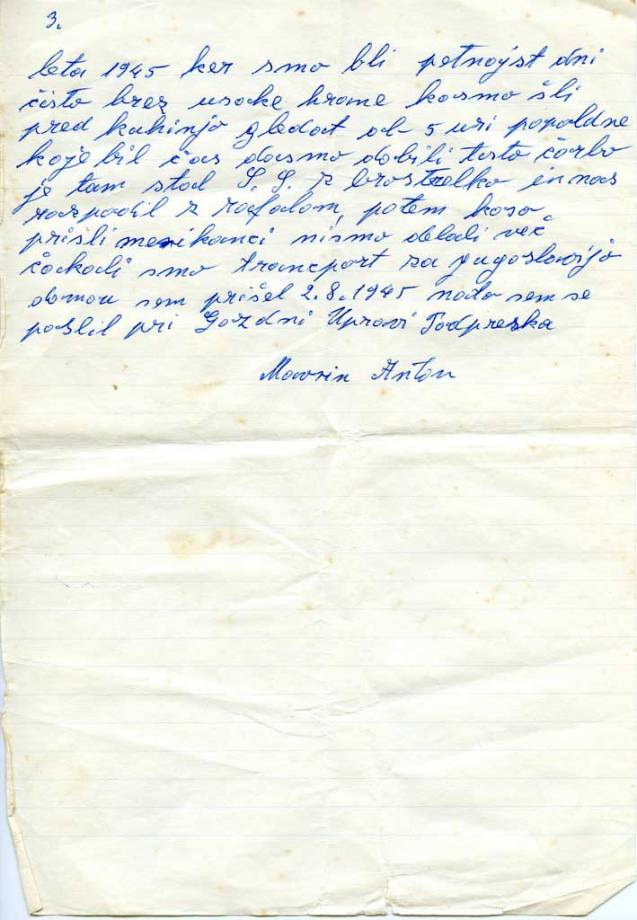 3.
leta 1945 ker smo bli petnajst dni
čisto brez usake hrane kosmo šli
pred kuhinjo gledat ob 5 uri popoldne
koje bil čas dasmo dobili tisto čorbo
je tam stal S.S. z brostrelko in nas
raspodil z rafalom, potem koso
prišli merikanci nismo delali več
čackali smo trancport za jugoslavijo
domou sem prišel 2.8.1945 nato sem se
poslil pri Gozdni Upravi Podpreska
Anton